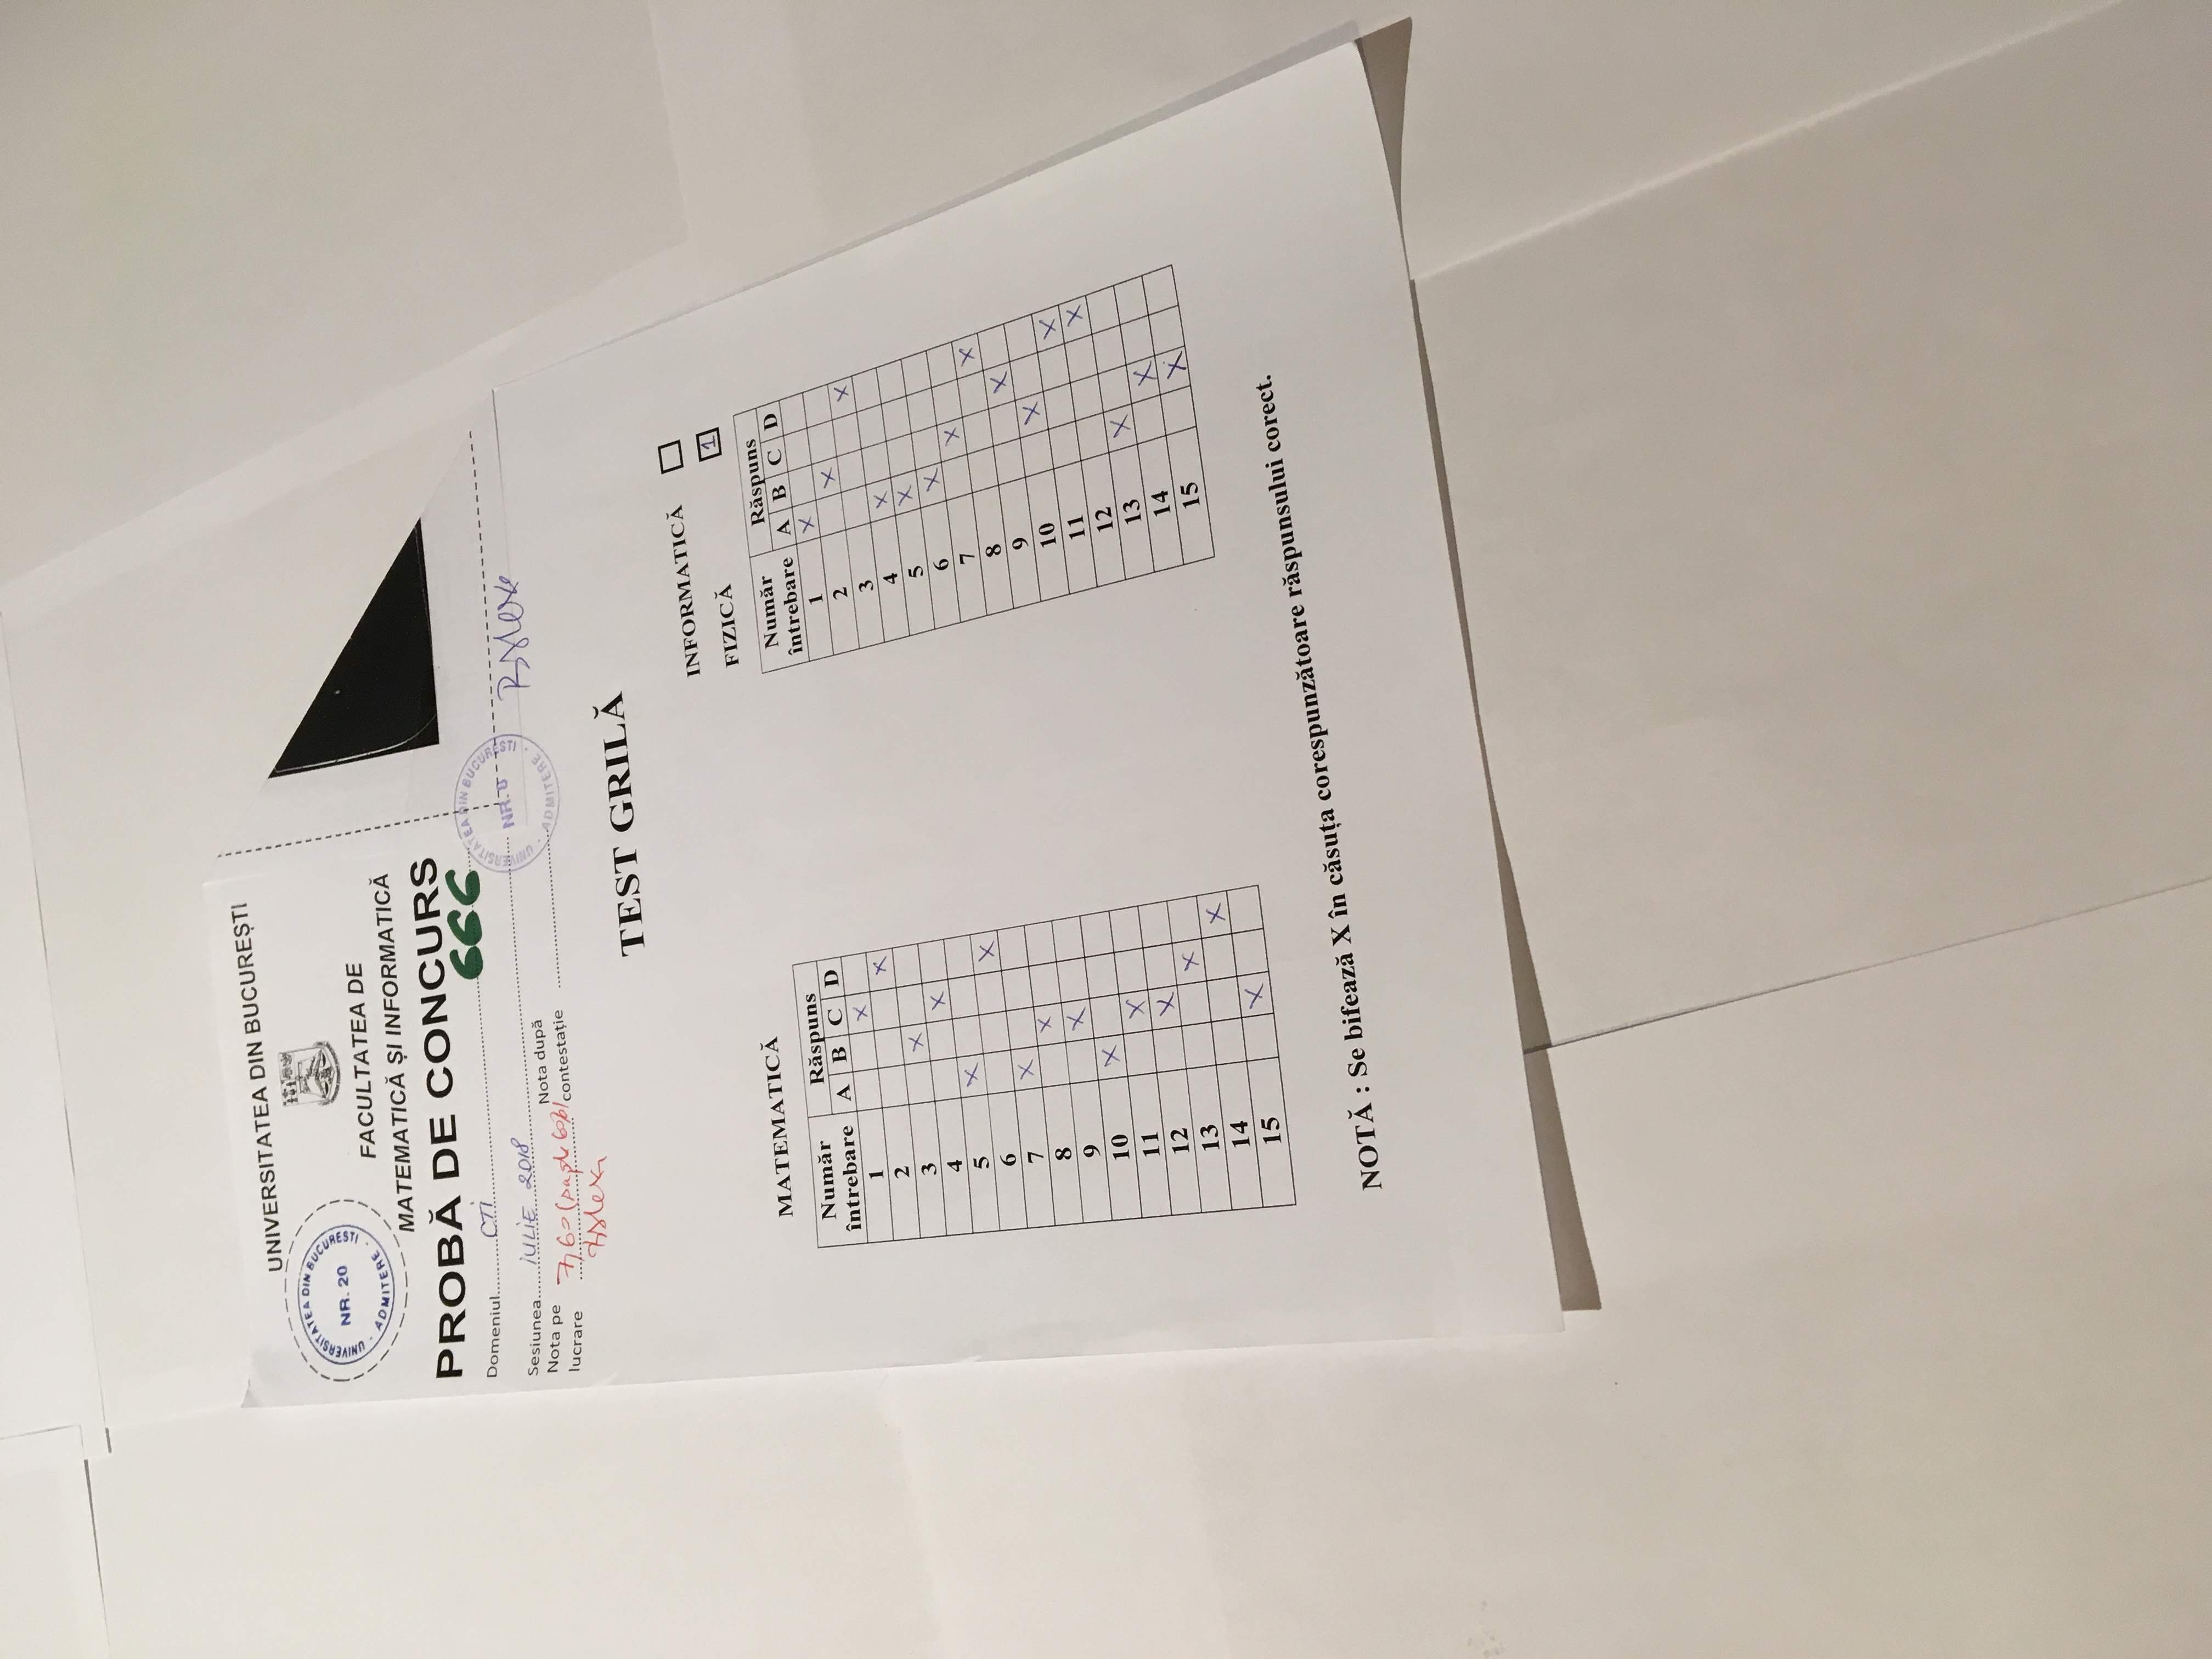 UNIVERSITATEA DIN BUCUREȘTI
UNIVERSITATEA DIN BUCUREȘTI
NR. 20
ADMITERE
FACULTATEA DE
MATEMATICĂ ȘI INFORMATICĂ
PROBĂ DE CONCURS
666
Domeniul CTI
Sesiunea IULIE 2018
Nota pe lucrare 7,60
Nota după contestație
UNIVERSITATEA DIN BUCUREȘTI
NR. 8
ADMITERE
TEST GRILĂ
INFORMATICĂ
FIZICĂ 1
MATEMATICĂ
Număr întrebare Răspuns
A B C D
1 X
2 X
3 X
4 X
5 X
6 X
7 X
8 X
9 X
10 X
11 X
12 X
13 X
14 X
15 X
Număr întrebare Răspuns
A B C D
1 X
2 X
3 X
4 X
5 X
6 X
7 X
8 X
9 X
10 X
11 X
12 X
13 X
14 X
15 X
NOTĂ : Se bifează X în căsuța corespunzătoare răspunsului corect.